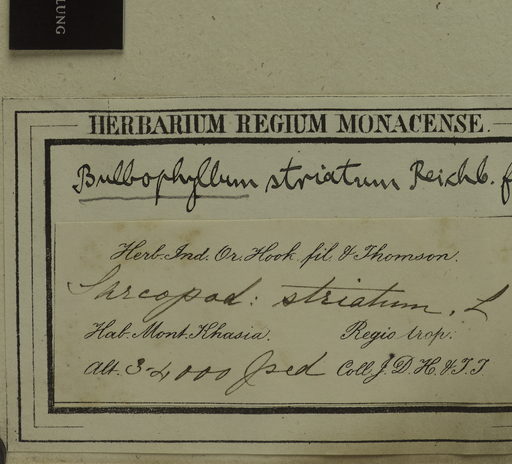 LUNG
HERBARIUM REGIUM MONACENSE.
Bulbophyllum striatum Reichb. f
Herb. Ind. Or. Hook. fil. & Thomson.
Sarcopod: striatum. L
Hab. Mont. Khasia. Regio trop.
Alt. 3-4,000 ped Coll. J. D. H. & T. T